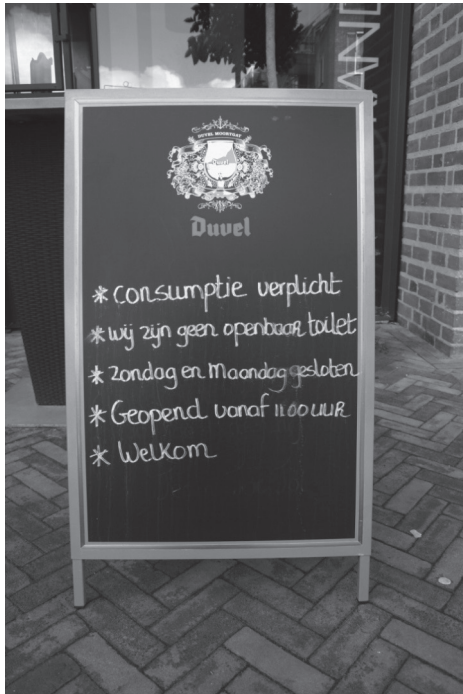 DUVEL MOORTGAT
Duvel
Duvel
* consumptie verplicht
* wij zijn geen openbaar toilet
* zondag en maandag gesloten
* Geopend vanaf 11.00 UUR
* Welkom